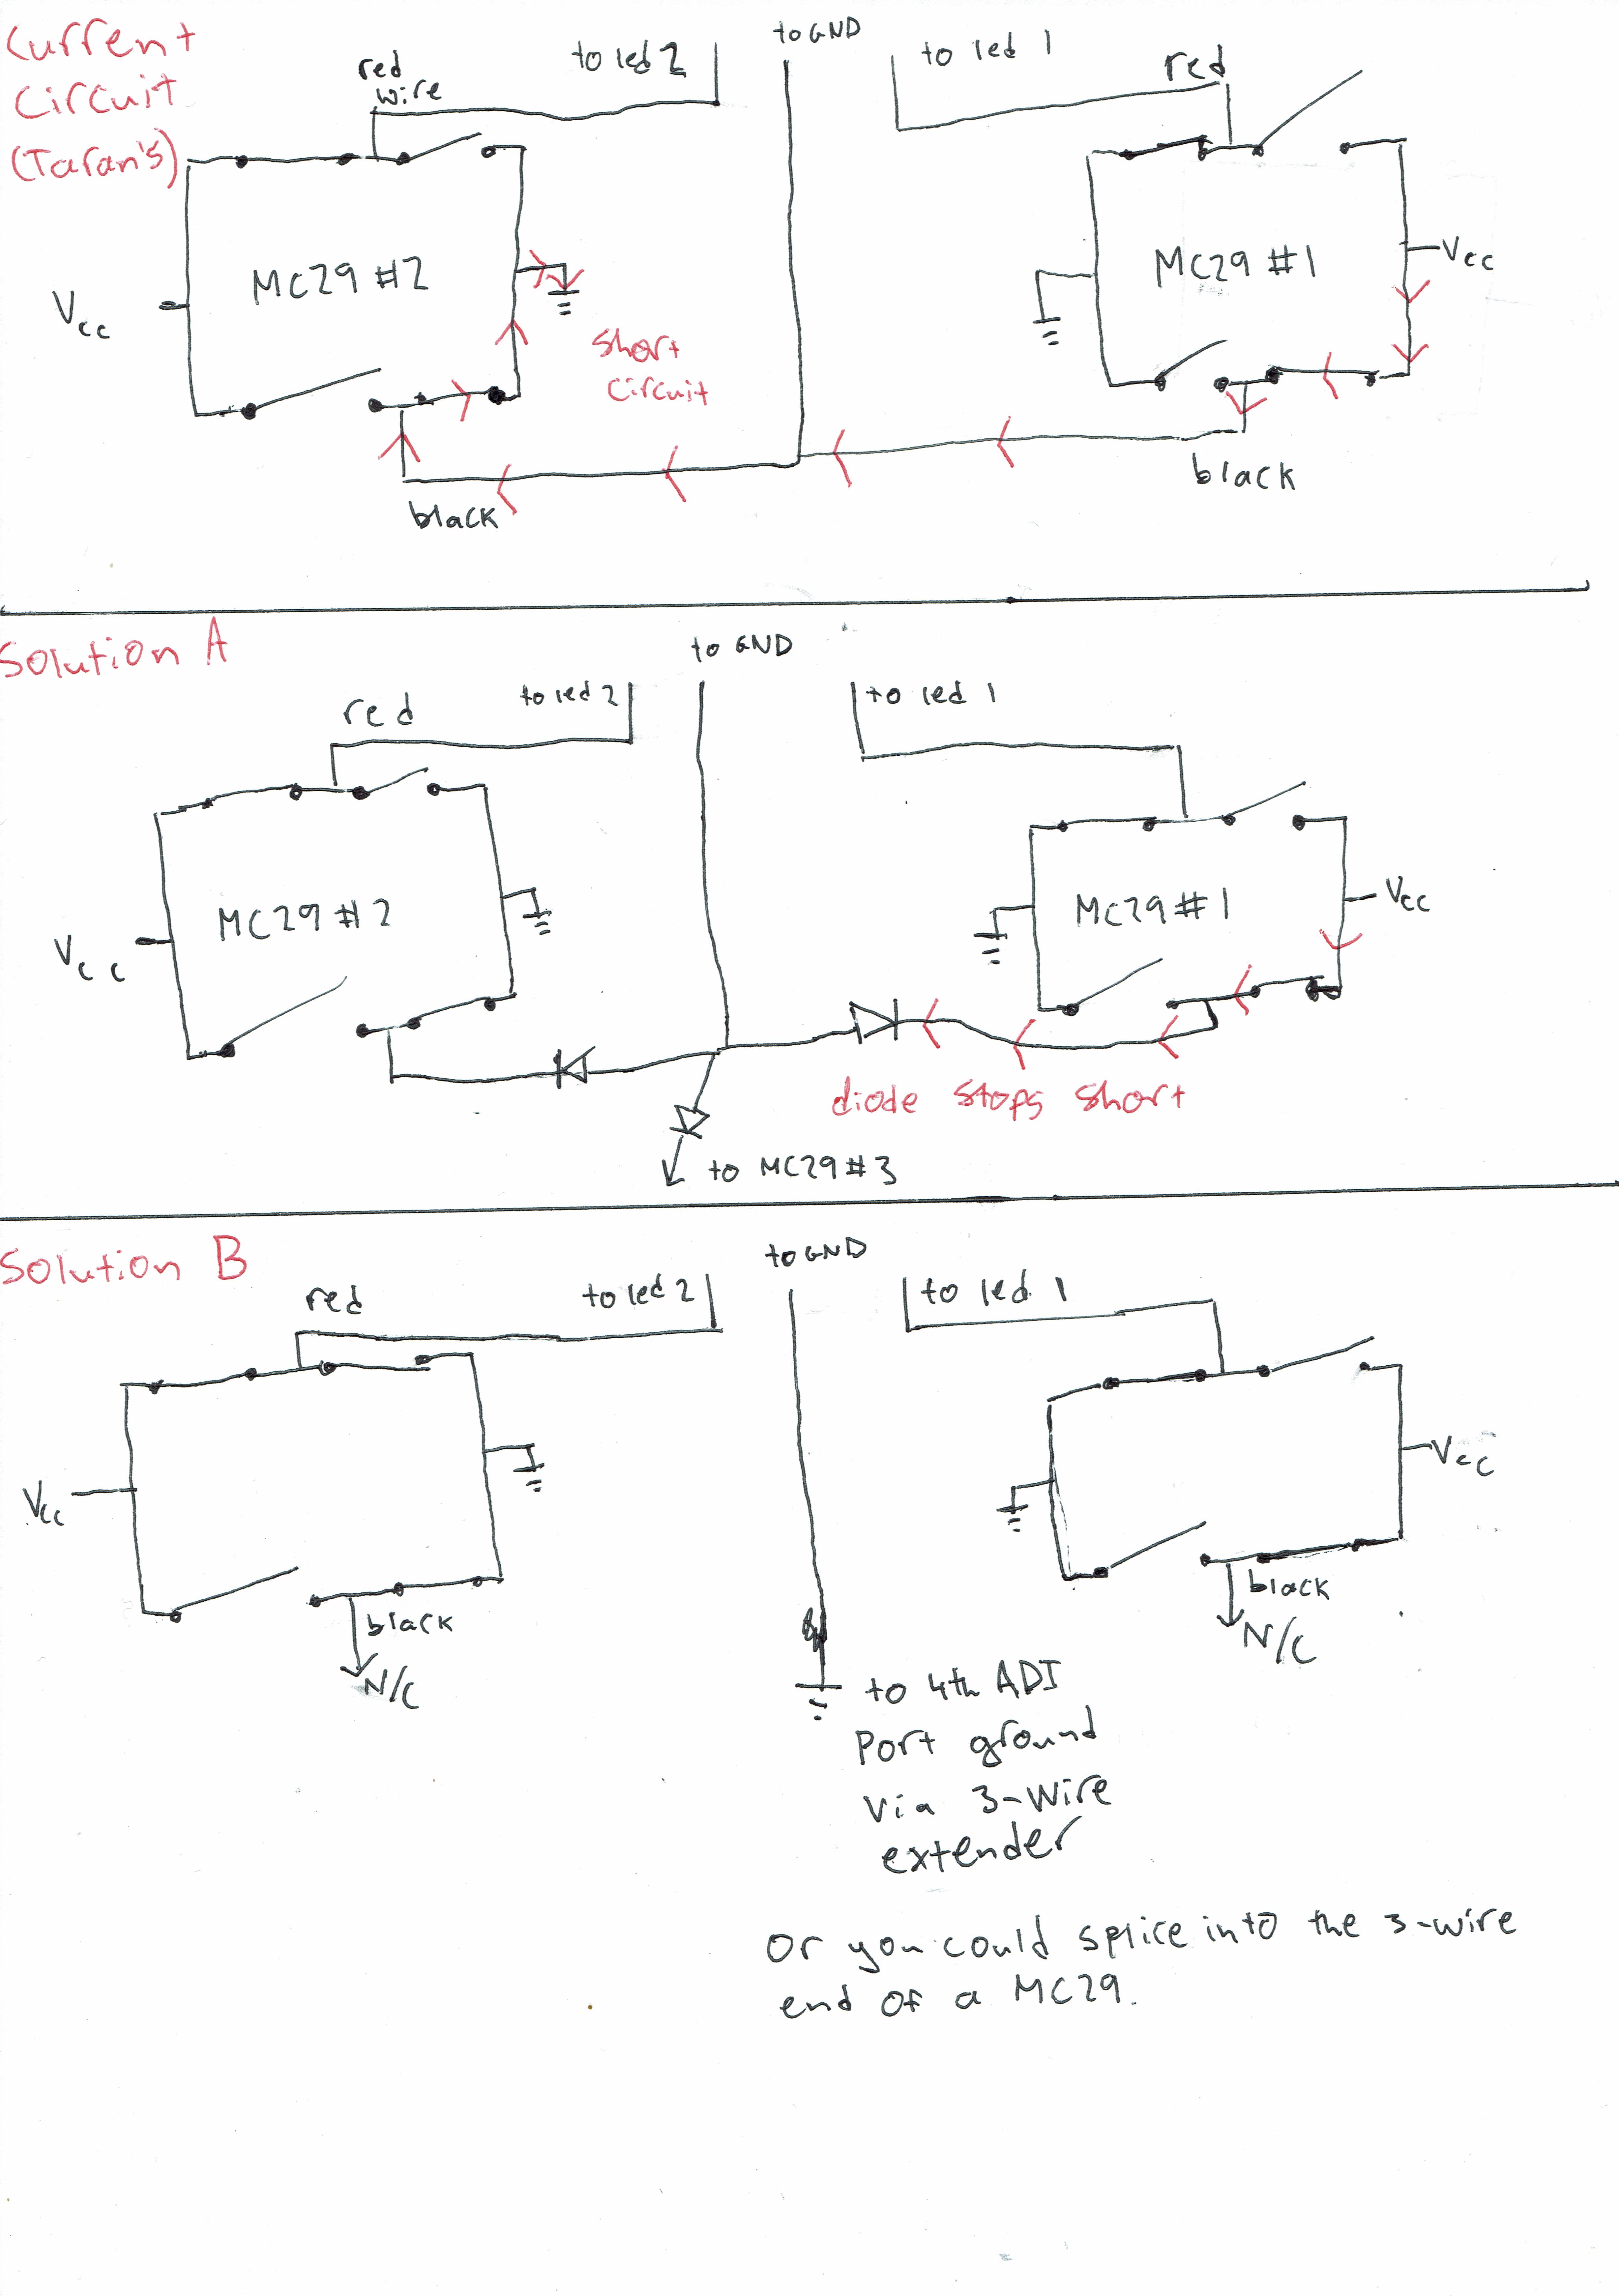 Current
Circuit
(Taran's)
red
wire
to led 2
to GND
to led 1
red
MC29 #2
Vcc
short
circuit
black
MC29 #1
Vcc
black
Solution A
red
to led 2
to GND
to led 1
MC29 #2
Vcc
MC29 #1
Vcc
diode stops short
to MC29 #3
Solution B
red
to led 2
to GND
to led 1
Vcc
black
N/C
Vcc
black
N/C
to 4th ADI
Port ground
via 3-wire
extender
Or you could splice into the 3-wire
end of a MC29.